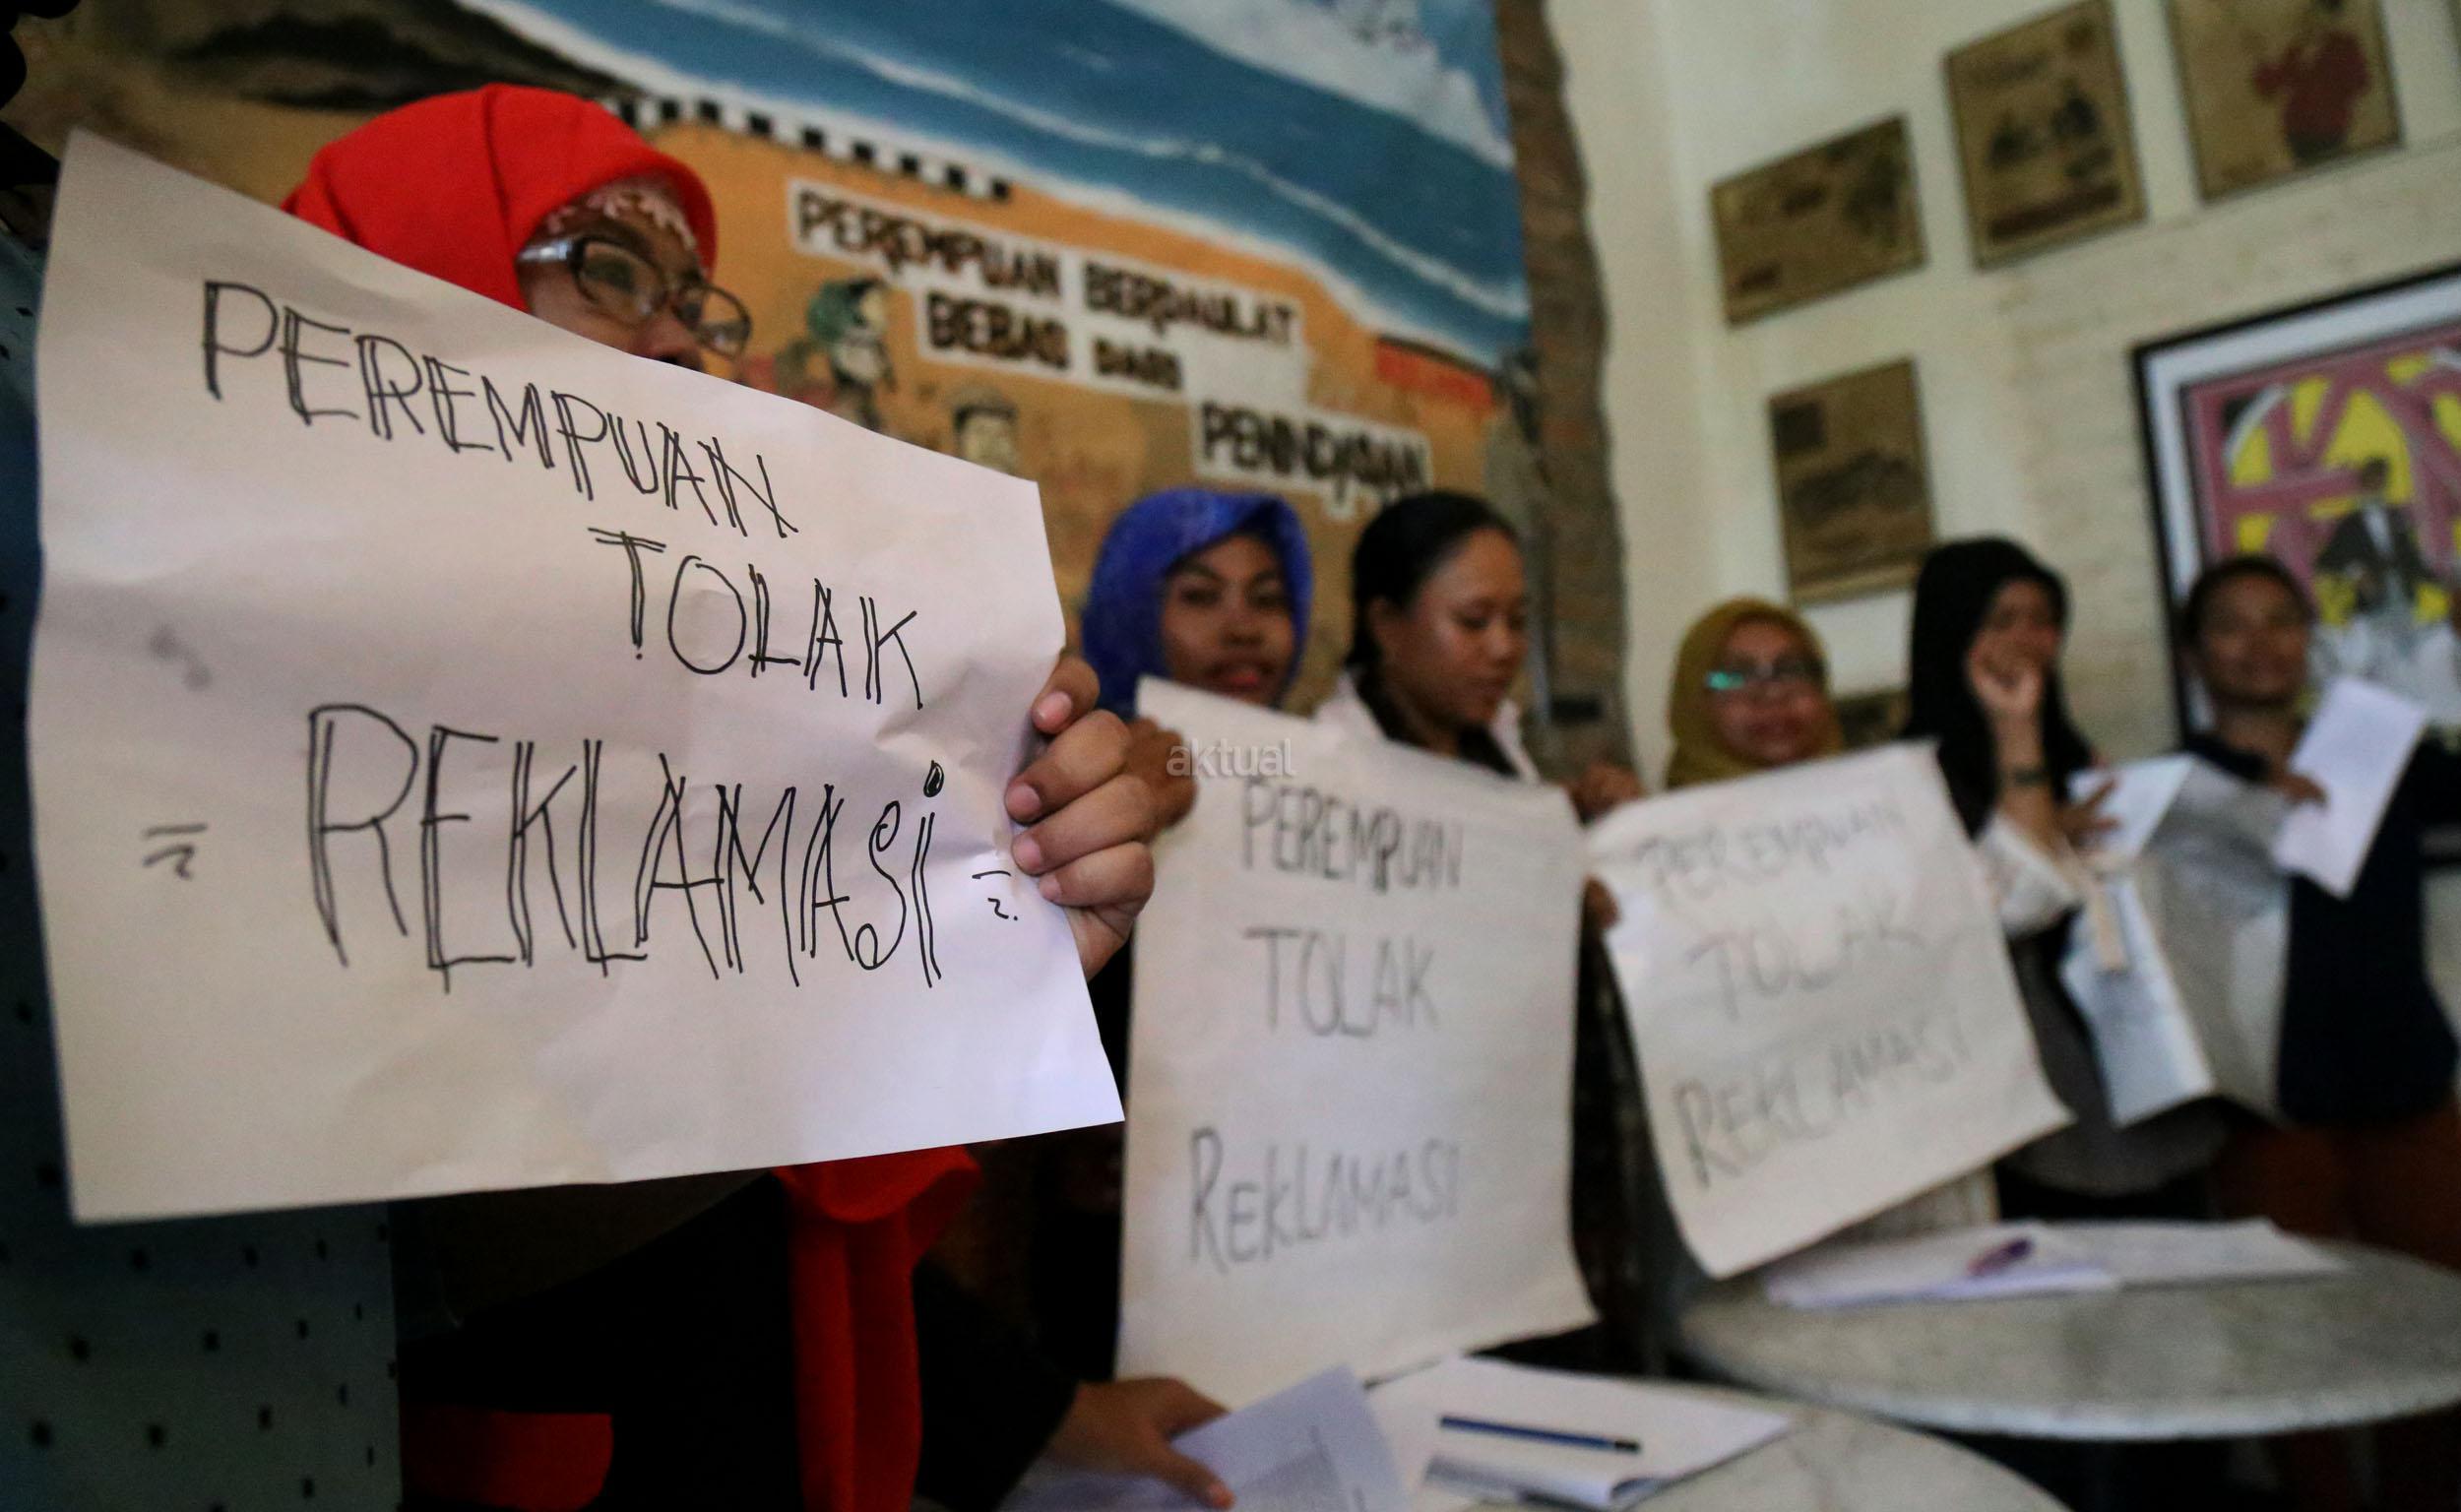 PEREMPUAN
TOLAK
= REKLAMASi =
PEREMPUAN BERDAULAT
BEBAS DARI
PENINDASAN
aktual
PEREMPUAN
TOLAK
REKLAMASI
PEREMPUAN
TOLAK
REKLAMASI